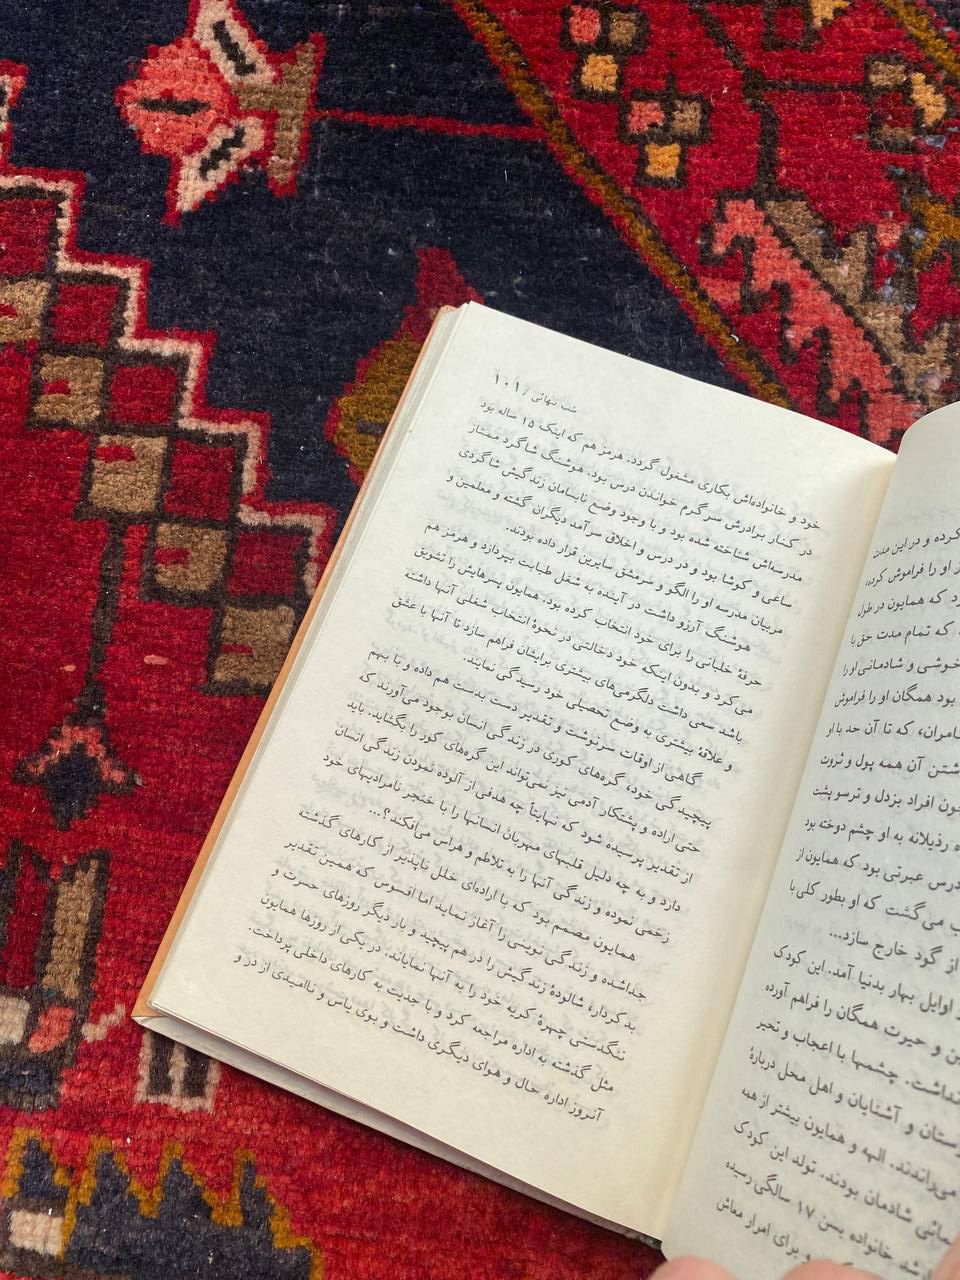 شب تنهائی / ۱۰۱
خود و خانواده‌اش بکاری مشغول گردد. هرمز هم که اینک ۱۵ ساله بود
در کنار برادرش سرگرم خواندن درس بود. هوشنگ شاگرد ممتاز
مدرسه‌اش شناخته شده بود و با وجود وضع نابسامان زندگیش شاگردی
ساعی و کوشا بود و در درس و اخلاق سرآمد دیگران گشته و معلمین و
مربیان مدرسه او را الگو و سرمشق سایرین قرار داده بودند.
هوشنگ آرزو داشت در آینده به شغل طبابت بپردازد و هرمز هم
حرفهٔ خلبانی را برای خود انتخاب کرده بود. همایون پسرهایش را تشویق
می‌کرد و بدون اینکه خود دخالتی در نحوهٔ انتخاب شغلی آنها داشته
باشد سعی داشت دلگرمی‌های بیشتری برایشان فراهم سازد تا آنها با عشق
و علاقهٔ بیشتری به وضع تحصیلی خود رسیدگی نمایند.
گاهی از اوقات سرنوشت و تقدیر دست بدست هم داده و با بهم
پیچیدگی خود، گره‌های کوری در زندگی انسان بوجود می‌آورند که
حتی اراده و پشتکار آدمی نیز نمی‌تواند این گره‌های کور را بگشاید. باید
از تقدیر پرسیده شود که نهایتاً چه هدفی از آلوده نمودن زندگی انسان
دارد و به چه دلیل قلبهای مهربان انسانها را با خنجر نامرادیهای خود
زخمی نموده و زندگی آنها را به تلاطم و هراس می‌افکند؟...
همایون مصمم بود که با اراده‌ای خلل ناپذیر از کارهای گذشته
جداشده و زندگی نوینی را آغاز نماید اما افسوس که همین تقدیر
بد کردار، شالودهٔ زندگیش را در هم پیچید و بار دیگر روزهای حسرت و
تنگدستی چهرهٔ کریه خود را به آنها نمایاند. در یکی از روزها همایون
مثل گذشته به اداره مراجعه کرد و با جدیت به کارهای داخلی پرداخت.
آنروز اداره حال و هوای دیگری داشت و بوی یاس و ناامیدی از در و
کرده و در این مدت
او را فراموش کرده،
که همایون در طول
که تمام مدت حق با
خوشی و شادمانی او را
بود همگان او را فراموش
که تا آن حد با او
آن همه پول و ثروت
افراد بزدل و ترسو پشت
رذیلانه به او چشم دوخته بود
درس عبرتی بود که همایون از
می‌گشت که او بطور کلی با
از گود خارج سازد...
اوایل بهار بدنیا آمد. این کودک
و حیرت همگان را فراهم آورده
نداشت. چشمها با اعجاب و تحیر
و آشنایان و اهل محل دربارهٔ
می‌راندند. الهه و همایون بیشتر از همه
شادمان بودند. تولد این کودک
خانواده بسن ۱۷ سالگی رسیده
و برای امرار معاش